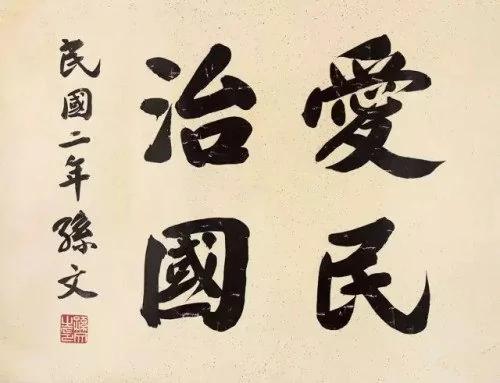 愛民
治國
民國二年孫文